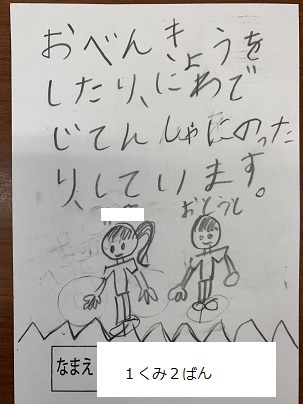 おべんきょうを
したり、にわで
じてんしゃにのった
り、しています。
おとうし
なまえ
１くみ２ばん